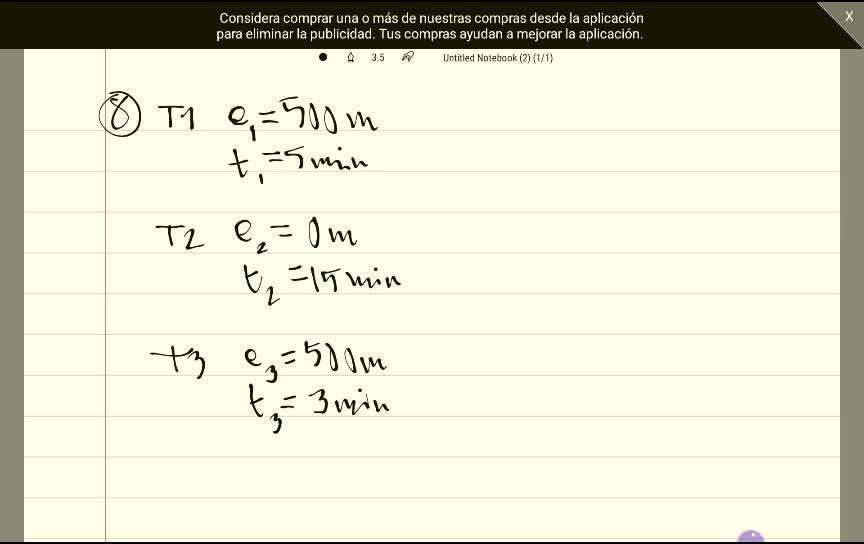 Considera comprar una o más de nuestras compras desde la aplicación
para eliminar la publicidad. Tus compras ayudan a mejorar la aplicación.
X
3.5 Untitled Notebook (2) (1/1)
8 T1 e₁=500m
t₁=5min
T2 e₂=0m
t₂=15min
T3 e₃=500m
t₃=3min